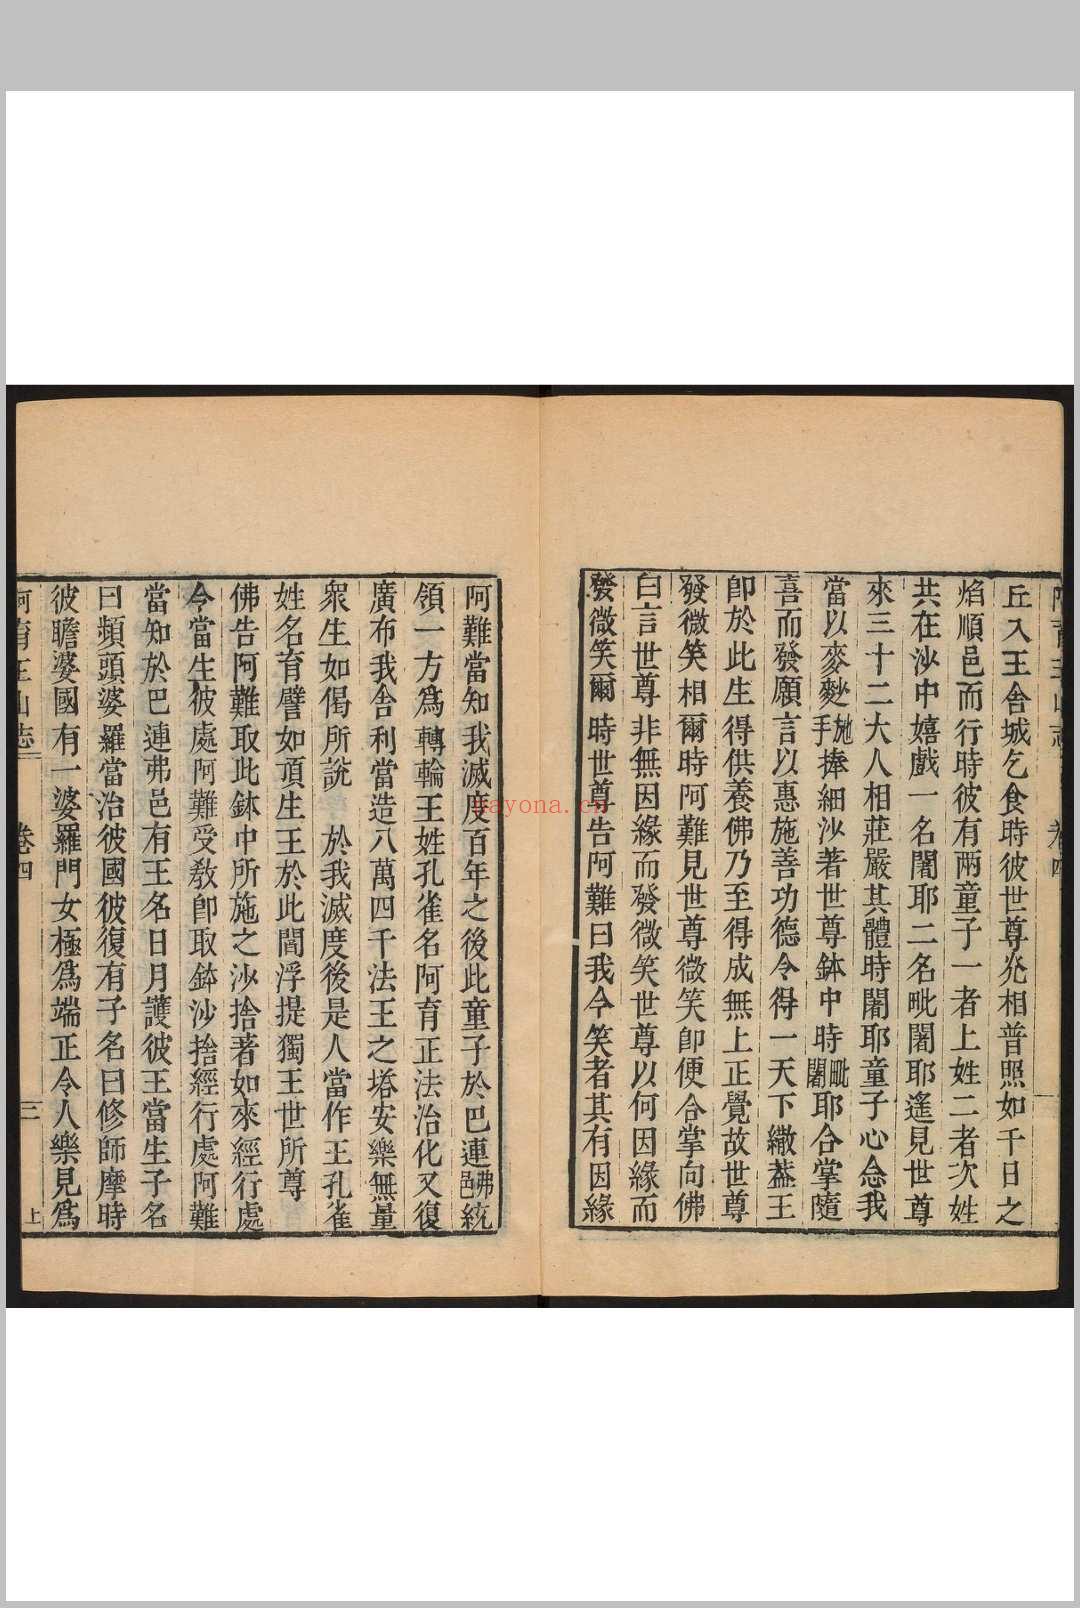 丘入王舍城乞食時彼世尊光相普照如千日之
焰順邑而行時彼有兩童子一者上姓二者次姓
共在沙中嬉戲一名闍耶二名毗闍耶遙見世尊
來三十二大人相莊嚴其體時闍耶童子心念我
當以麥麨施手捧細沙著世尊鉢中時毗闍耶合掌隨
喜而發願言以惠施善功德令得一天下繖葢王
卽於此生得供養佛乃至得成無上正覺故世尊
發微笑相爾時阿難見世尊微笑卽便合掌向佛
白言世尊非無因緣而發微笑世尊以何因緣而
發微笑爾時世尊告阿難曰我今笑者其有因緣
阿難當知我滅度百年之後此童子於巴連弗邑統
領一方爲轉輪王姓孔雀名阿育正法治化又復
廣布我舍利當造八萬四千法王之塔安樂無量
衆生如偈所說 於我滅度後是人當作王孔雀
姓名育譬如頂生王於此閻浮提獨王世所尊
佛告阿難取此鉢中所施之沙捨著如來經行處
令當生彼處阿難受敎卽取鉢沙捨經行處阿難
當知於巴連弗邑有王名日月護彼王當生子名
曰頻頭婆羅當治彼國彼復有子名曰修師摩時
彼瞻婆國有一婆羅門女極爲端正令人樂見爲
阿育王山志 卷四 三 上
nayona.cn